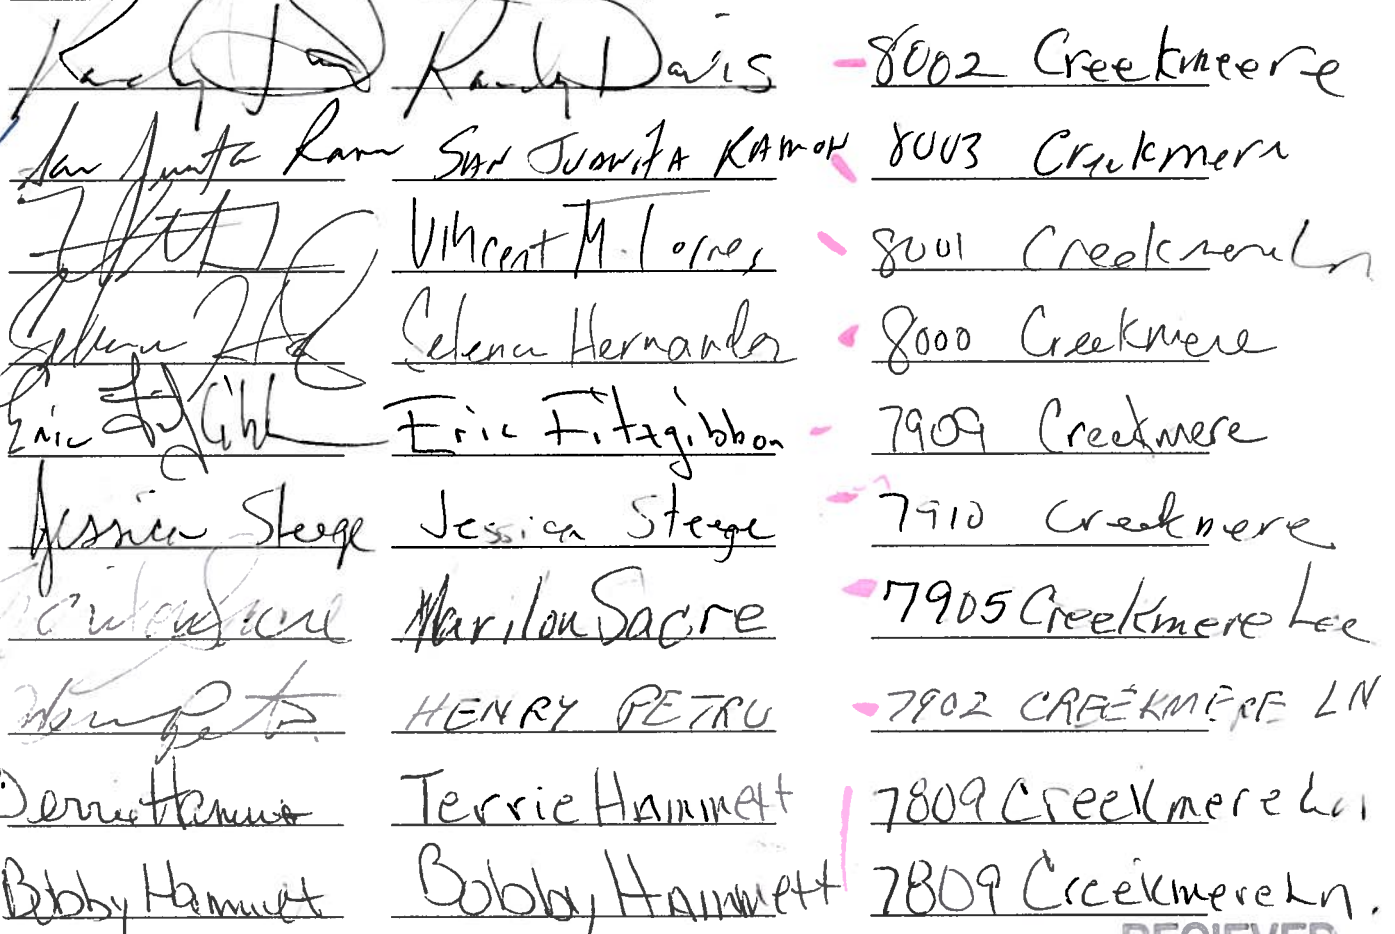 Randy D Randy Davis 8002 Creekmeere
San Juanita Ramon SAN JUANITA RAMON 8003 Creekmere
Vincent M. Torres 8001 Creekmere Ln
Selena Selena Hernandez 8000 Creekmere
Eric Fitzgibbon Eric Fitzgibbon 7909 Creekmere
Jessica Steege Jessica Steege 7910 Creekmere
Marilou Sacre Marilou Sacre 7905 Creekmere Lee
Henry Petru HENRY PETRU 7902 CREEKMERE LN
Terrie Hammett Terrie Hammett 7809 Creekmere Ln.
Bobby Hammett Bobby Hammett 7809 Creekmere Ln.